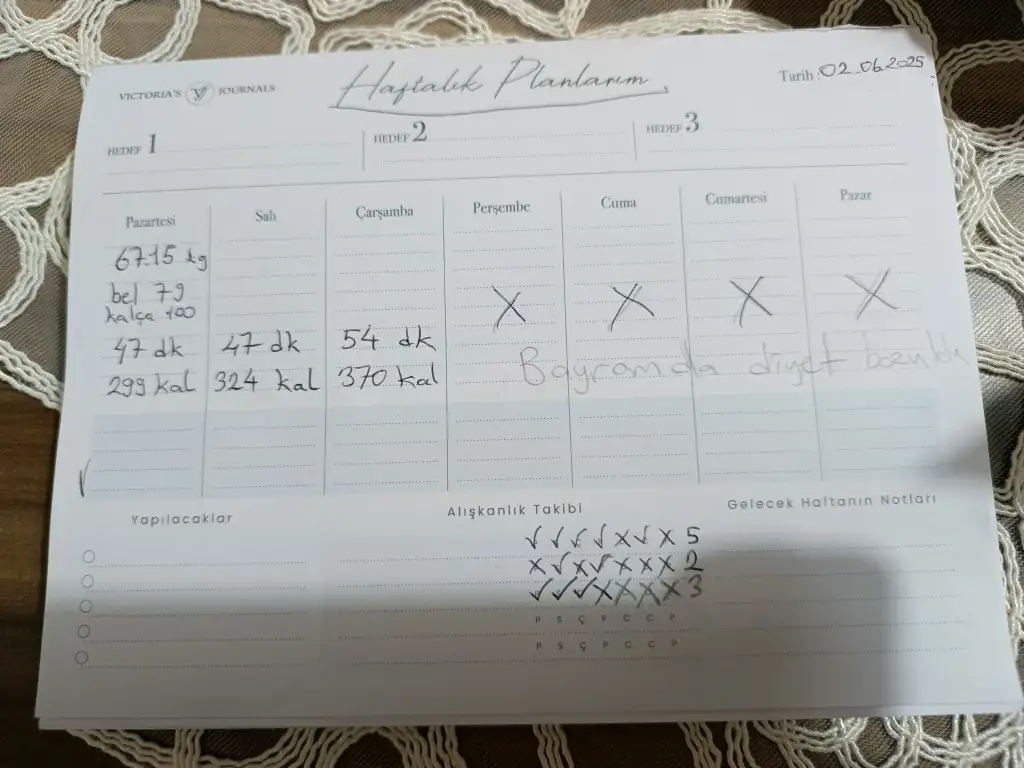 VICTORIA'S VJ JOURNALS
Haftalık Planlarım
Tarih: 02.06.2025
HEDEF 1
HEDEF 2
HEDEF 3
Pazartesi Salı Çarşamba Perşembe Cuma Cumartesi Pazar
67.15 kg
bel 79
kalça 100
X X X X
47 dk 47 dk 54 dk
299 kal 324 kal 370 kal
Bayramda diyet bozuldu
✓
Yapılacaklar
Alışkanlık Takibi
✓ ✓ ✓ ✓ X ✓ X 5
X ✓ X ✓ X X X 2
✓ ✓ ✓ X X X X 3
P S Ç P C C P
P S Ç P C C P
Gelecek Haftanın Notları